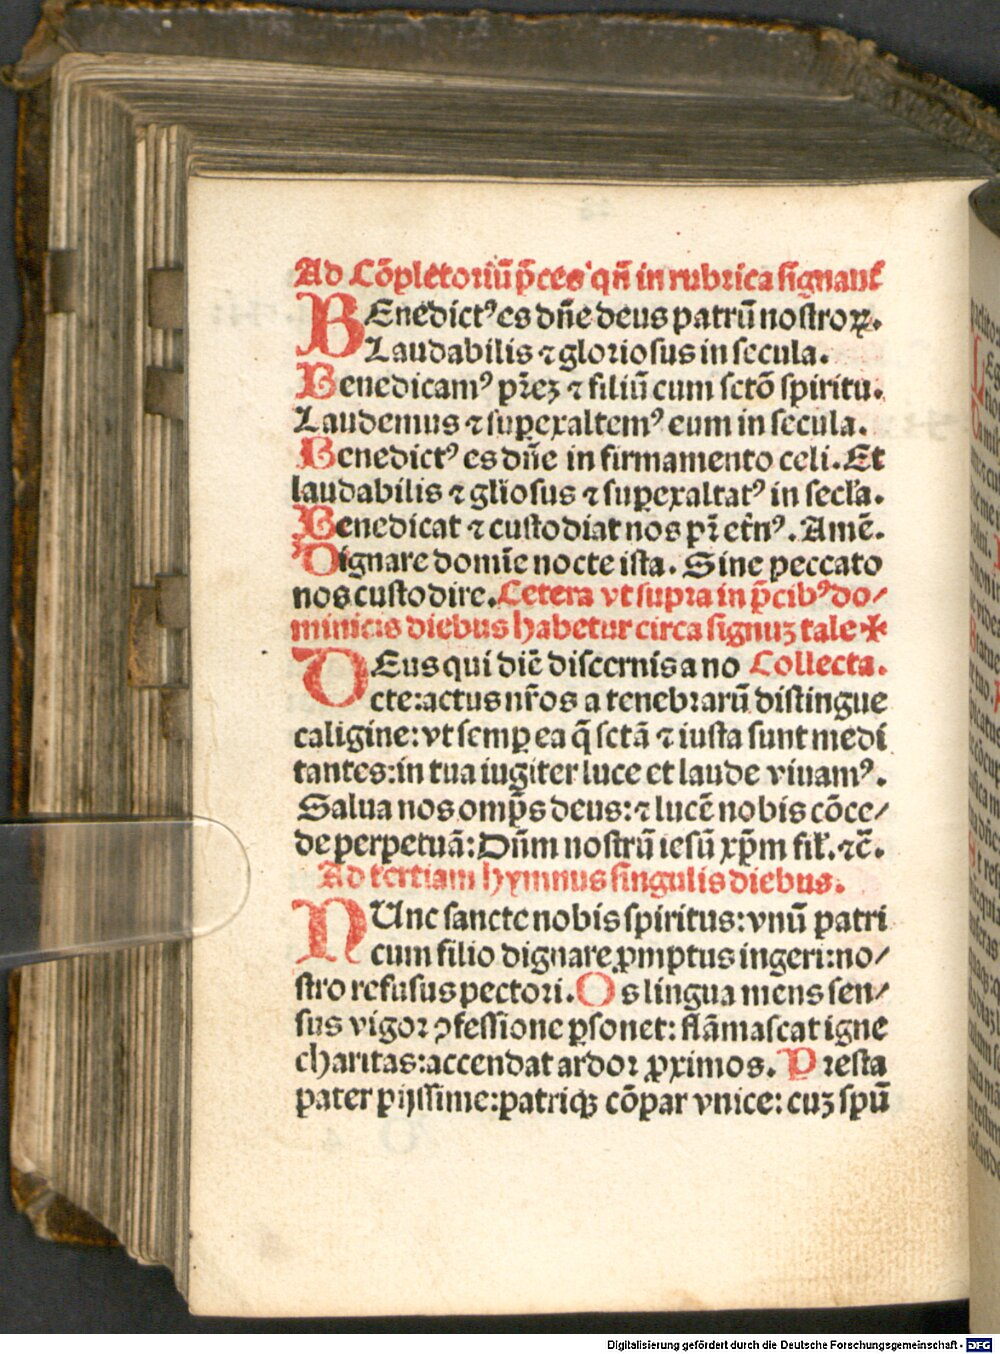 Ad Cōpletoriū p̄ces qn̄ in rubrica signant᷑
BEnedictꝰ es dn̄e deus patrū nostroꝝ.
Laudabilis ⁊ gloriosus in secula.
Benedicamꝰ pr̄eꝫ ⁊ filiū cum sctō spiritu.
Laudemus ⁊ suꝑexaltemꝰ eum in secula.
Benedictꝰ es dn̄e in firmamento celi. Et
laudabilis ⁊ gl̄iosus ⁊ suꝑexaltatꝰ in secl̄a.
Benedicat ⁊ custodiat nos pr̄ etn̄ꝰ. Amē.
Dignare domīe nocte ista. Sine peccato
nos custodire. Cetera vt supra in p̄cibꝰ do/
minicis diebus habetur circa signuꝫ tale ✠
DEus qui diē discernis a no Collecta.
cte: actus nr̄os a tenebrarū distingue
caligine: vt semꝑ ea q̄ sctā ⁊ iusta sunt medi
tantes: in tua iugiter luce et laude viuamꝰ.
Salua nos omp̄s deus: ⁊ lucē nobis cōce/
de perpetuā: Dn̄m nostrū iesū xp̄m fil̄. ⁊c̄.
Ad tertiam hymnus singulis diebus.
NUnc sancte nobis spiritus: vnū patri
cum filio dignare ꝓmptus ingeri: no/
stro refusus pectori. Os lingua mens sen/
sus vigor ꝯfessione ꝑsonet: flāmascat igne
charitas: accendat ardor ꝓximos. Presta
pater pijssime: patriqꝫ cōpar vnice: cuꝫ spū
Digitalisierung gefördert durch die Deutsche Forschungsgemeinschaft - DFG